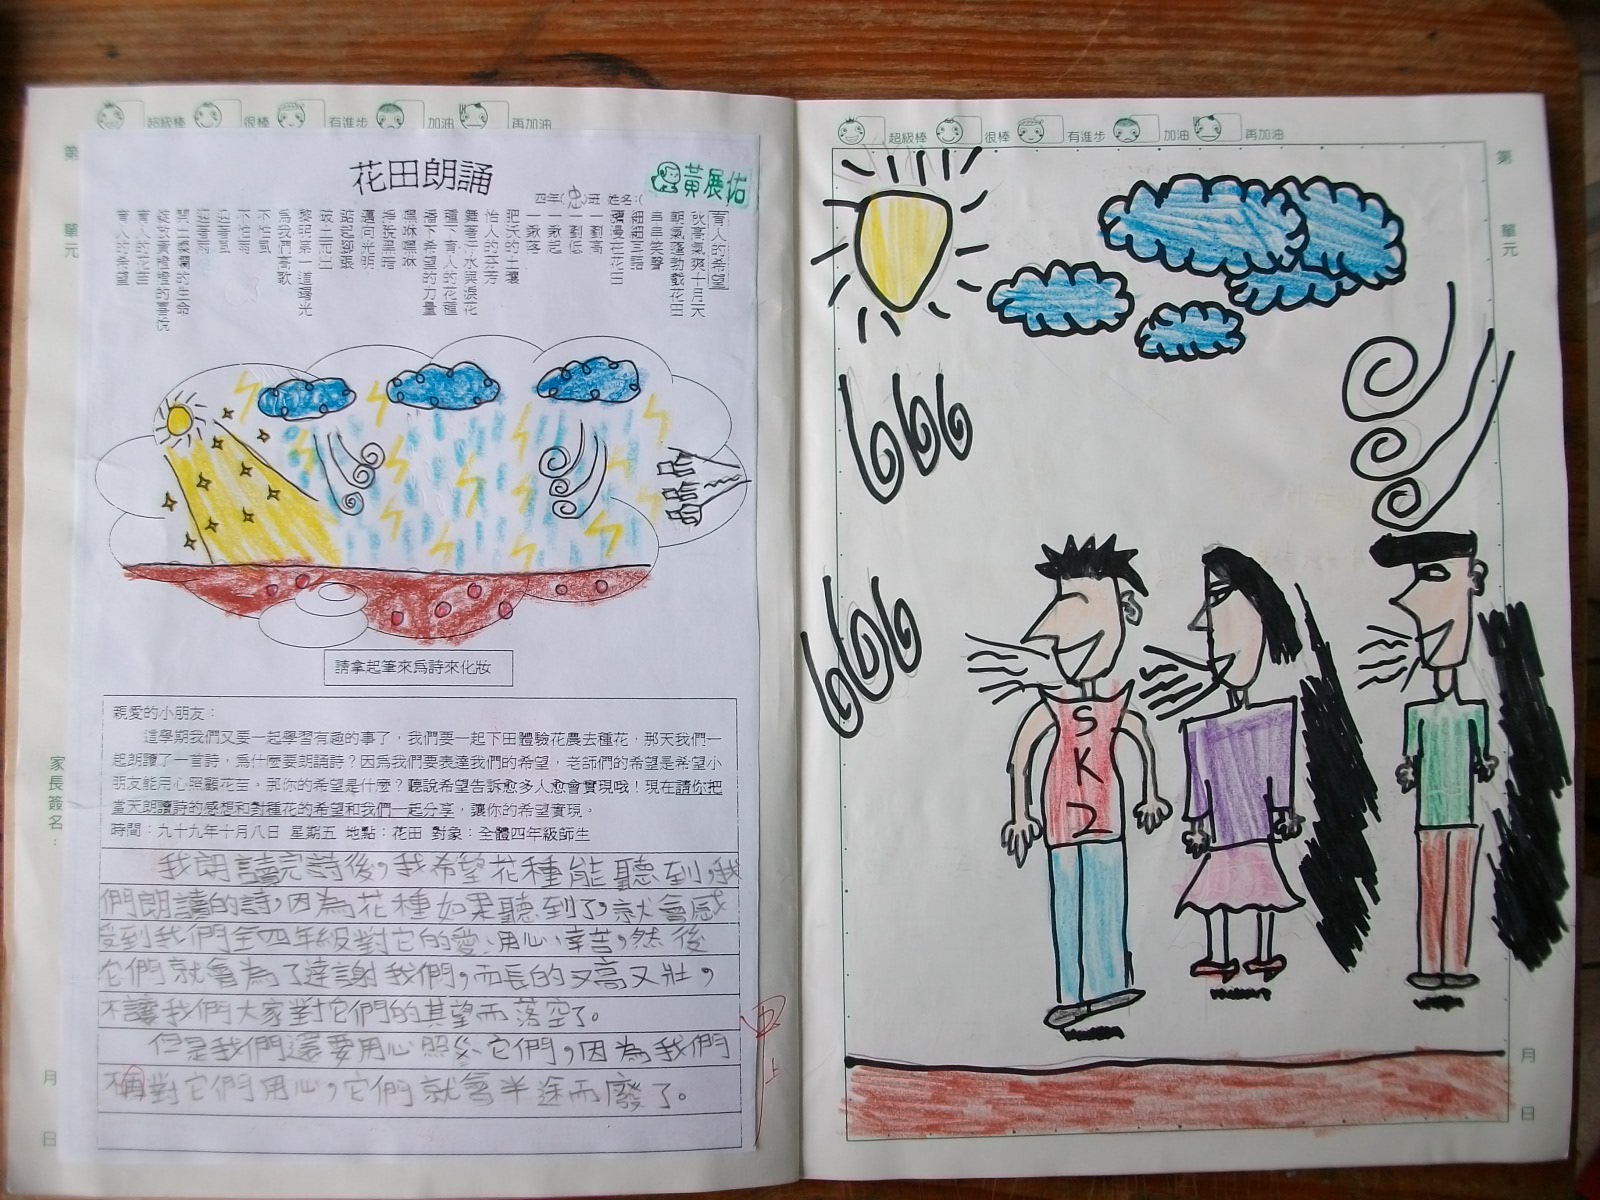 超級棒 很棒 有進步 加油 再加油
第
單元
花田朗誦
黃展佑
四年(忠)班 姓名:(
育人的希望
秋高氣爽十月天
朝氣蓬勃戲花田
串串笑聲
細細耳語
瀰漫在花田
一劃高
一劃低
一鍬起
一鍬落
肥沃的土壤
怡人的芬芳
舞著汗水與淚花
種下育人的花種
播下希望的力量
嘿咻嘿咻
掙脫黑暗
邁向光明
鉛起勁張
破土而出
黎明第一道曙光
為我們高歌
不怕風
不怕雨
迎著風
迎著雨
開出燦爛的生命
綻放實禮禮的喜悅
育人的花苗
育人的希望
請拿起筆來為詩來化妝
親愛的小朋友：
這學期我們又要一起學習有趣的事了，我們要一起下田體驗花農去種花，那天我們一
起朗讀了一首詩，為什麼要朗誦詩？因為我們要表達我們的希望，老師們的希望是希望小
朋友能用心照顧花苗。那你的希望是什麼？聽說希望告訴愈多人愈會實現哦！現在請你把
當天朗讀詩的感想和對種花的希望和我們一起分享，讓你的希望實現。
時間：九十九年十月八日 星期五 地點：花田 對象：全體四年級師生
我朗讀完詩後，我希望花種能聽到，我
們朗讀的詩，因為花種如果聽到了，就會感
受到我們全四年級對它的愛、用心、辛苦，然後
它們就會為了達謝我們，而長的又高又壯，
不讓我們大家對它們的其望而落空了。
但是我們還要用心照 它們，因為我們
不再對它們用心，它們就會半途而廢了。
甲上
家長簽名：
月
日
超級棒 很棒 有進步 加油 再加油
第
單元
SK2
月
日